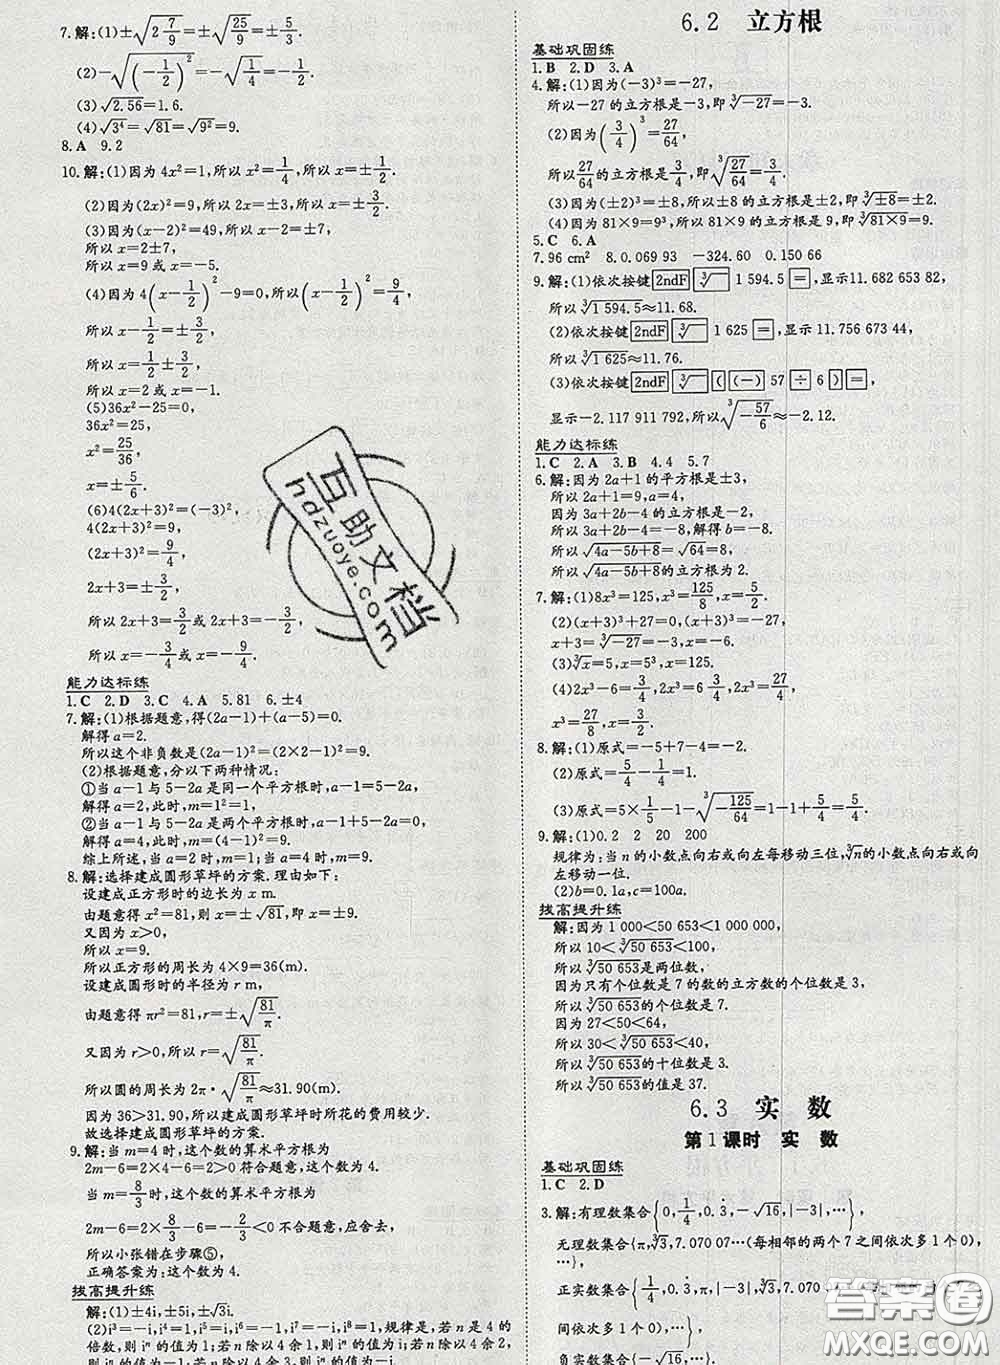 7.解:(1)±√(2 7/9)=±√(25/9)=±5/3.
(2)-√((-1/2)²)=-√(1/4)=-1/2.
(3)√2.56=1.6.
(4)√3⁴=√81=√9²=9.
8.A 9.2
10.解:(1)因为 4x²=1,所以 x²=1/4,所以 x=±1/2.
(2)因为(2x)²=9,所以 2x=±3,所以 x=±3/2.
(3)因为(x-2)²=49,所以 x-2=±7,
所以 x=2±7,
所以 x=9 或 x=-5.
(4)因为 4(x-1/2)²-9=0,所以(x-1/2)²=9/4,
所以 x-1/2=±3/2,
所以 x=1/2±3/2,
所以 x=2 或 x=-1.
(5)36x²-25=0,
36x²=25,
x²=25/36,
x=±5/6.
(6)4(2x+3)²=(-3)²,
4(2x+3)²=9,
(2x+3)²=9/4,
2x+3=±3/2,
所以 2x+3=3/2或 2x+3=-3/2,
所以 x=-3/4或 x=-9/4.
能力达标练
1.C 2.D 3.C 4.A 5.81 6.±4
7.解:(1)根据题意,得(2a-1)+(a-5)=0.
解得 a=2.
所以这个非负数是(2a-1)²=(2×2-1)²=9.
(2)根据题意,分以下两种情况:
①当 a-1 与 5-2a 是同一个平方根时,a-1=5-2a,
解得 a=2,此时,m=1²=1;
②当 a-1 与 5-2a 是两个平方根时,a-1+5-2a=0,
解得 a=4,此时,m=(4-1)²=9.
综上所述,当 a=2 时,m=1;当 a=4 时,m=9.
8.解:选择建成圆形草坪的方案.理由如下:
设建成正方形时的边长为 x m.
由题意得 x²=81,则 x=±√81,即 x=±9.
又因为 x>0,
所以 x=9.
所以正方形的周长为 4×9=36(m).
设建成圆形时的半径为 r m,
由题意得 πr²=81,所以 r=±√(81/π).
又因为 r>0,所以 r=√(81/π).
所以圆的周长为 2π·√(81/π)≈31.90(m).
因为 36>31.90,所以建成圆形草坪时所花的费用较少.
故选择建成圆形草坪的方案.
9.解:当 m=4 时,这个数的算术平方根为
2m-6=2×4-6=2>0 符合题意,则这个数为 4.
当 m=8/3时,这个数的算术平方根为
2m-6=2×8/3-6=-2/3<0 不合题意,应舍去.
所以小张错在步骤⑤,
正确答案为:这个数为 4.
拔高提升练
解:(1)±4i,±5i,±√3i.
(2)i³=-i,i⁴=1,i⁵=i,i⁶=-1,i⁷=-i,i⁸=1,规律是,若 n 是 4 的
倍数,则 iⁿ 的值为 1;若 n 除以 4 余 1,则 iⁿ 的值为 i;若 n 除以 4 余 2,
6.2 立方根
基础巩固练
1.B 2.D 3.A
4.解:(1)因为(-3)³=-27,
所以-27 的立方根是-3,即∛-27=-3.
(2)因为(3/4)³=27/64,
所以27/64的立方根是3/4,即∛(27/64)=3/4.
(3)因为(±2)³=±8,所以±8 的立方根是±2,即∛±8=±2.
(4)因为 81×9=9³,所以 81×9 的立方根是 9,即∛81×9=9.
5.C 6.A
7.96 cm² 8.0.069 93 -324.60 0.150 66
9.解:(1)依次按键 2ndF ∛ 1 594.5 =,显示 11.682 653 82,
所以∛1 594.5≈11.68.
(2)依次按键 2ndF ∛ 1 625 =,显示 11.756 673 44,
所以∛1 625≈11.76.
(3)依次按键 2ndF ∛ ( (-) 57 ÷ 6 ) =,
显示-2.117 911 792,所以∛(-57/6)≈-2.12.
能力达标练
1.C 2.A 3.B 4.4 5.7
6.解:因为 2a+1 的平方根是±3,
所以 2a+1=9,a=4,
因为 3a+2b-4 的立方根是-2,
所以 3a+2b-4=-8,解得 b=-8.
所以√4a-5b+8=√64=8,
所以√4a-5b+8的立方根为 2.
7.解:(1)8x³=125,x³=125/8,x=5/2.
(2)(x+3)³+27=0,(x+3)³=-27,
x+3=∛-27=-3,x=-6.
(3)∛x=5,x=5³,x=125.
(4)2x³-6=3/4,2x³=6 3/4,2x³=27/4,
x³=27/8,x=3/2.
8.解:(1)原式=-5+7-4=-2.
(2)原式=5/4-1/4=1.
(3)原式=5×1/5-1-∛(-125/64)=1-1+5/4=5/4.
9.解:(1)0.2 2 20 200
规律为:当 n 的小数点向右或向左每移动三位,∛n的小数点向右或向
左移动一位.
(2)b=0.1a,c=100a.
拔高提升练
解:因为 1 000<50 653<1 000 000,
所以 10<∛50 653<100,
所以∛50 653是两位数,
因为只有个位数是 7 的数的立方数的个位数是 3,
所以∛50 653的个位数是 7.
因为 27<50<64,
所以 30<∛50 653<40,
所以∛50 653的十位数是 3.
所以∛50 653的值是 37.
6.3 实 数
第 1 课时 实 数
基础巩固练
1.C 2.D
3.解:有理数集合{0,1/4,0.3̇,-√16,|-3|,…},
无理数集合{π,∛3,7.070 07…(每相邻的两个 7 之间依次多 1 个 0),
…},
正实数集合{1/4,0.3̇,π,|-3|,∛3,7.070
间依次多 1 个 0),…},
互助文档
hdzuoye.com
答案圈
MXQE.COM